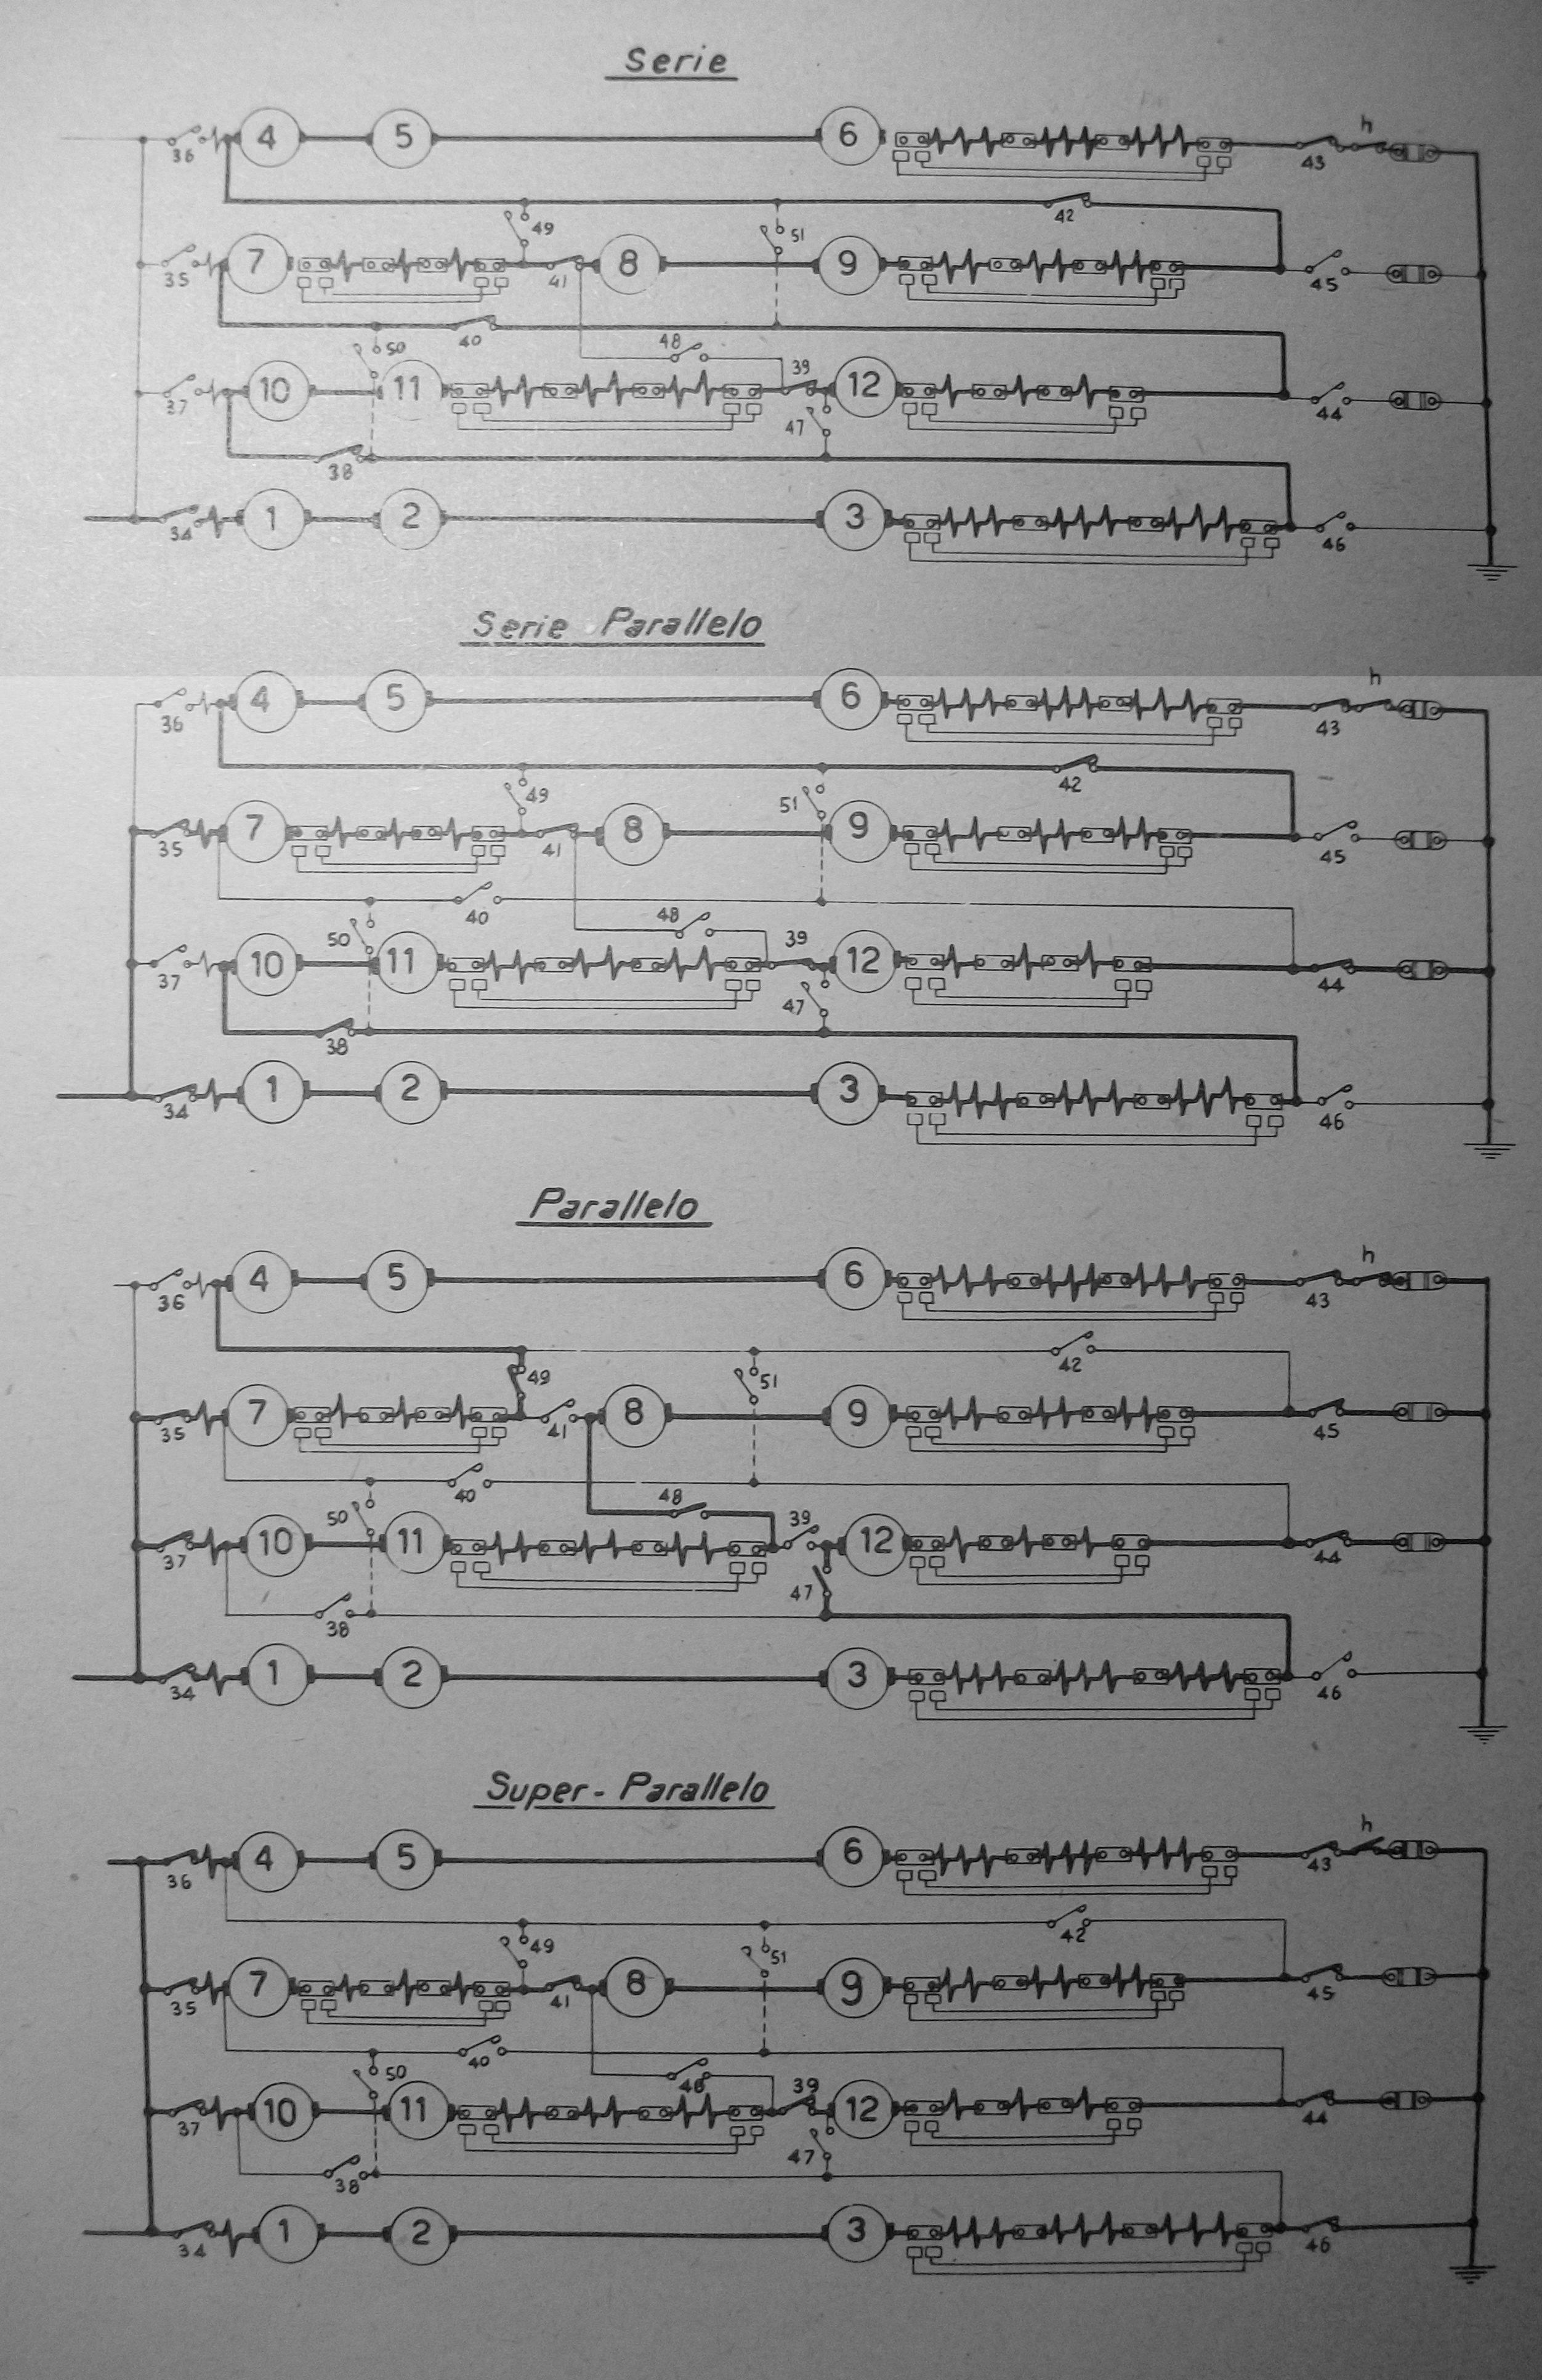 Serie
h
4 5 6
36 43
49 51 42
7 8 9
35 41 45
50 40 48 39
10 11 12
37 47 44
38
1 2 3
34 46
Serie Parallelo
h
4 5 6
36 43
49 51 42
7 8 9
35 41 45
40 48
50 39
10 11 12
37 47 44
38
1 2 3
34 46
Parallelo
h
4 5 6
36 43
49 51 42
7 8 9
35 41 45
40 48
50 39
10 11 12
37 47 44
38
1 2 3
34 46
Super-Parallelo
h
4 5 6
36 43
49 51 42
7 8 9
35 41 45
50 40 48 39
10 11 12
37 47 44
38
1 2 3
34 46